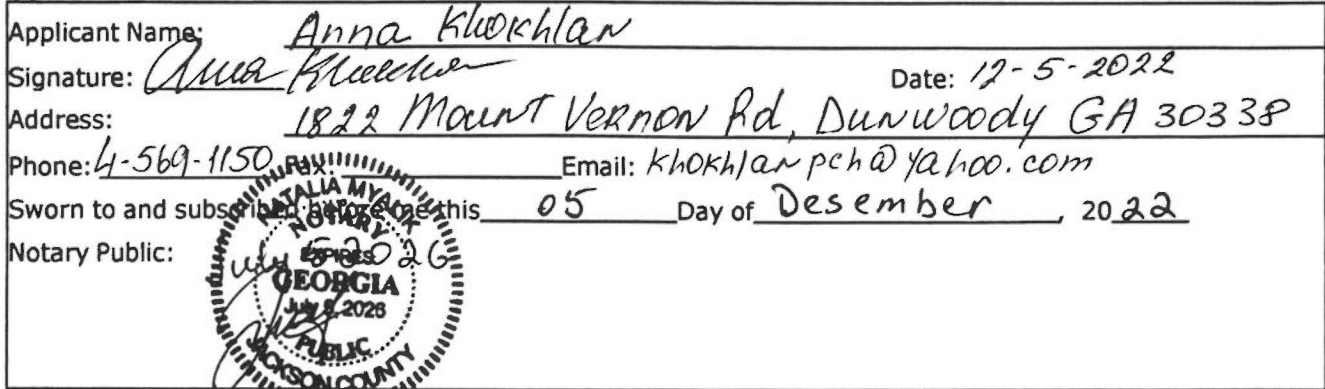 Applicant Name: Anna Khokhlan
Signature: Anna Date: 12-5-2022
Address: 1822 Mount Vernon Rd, Dunwoody GA 30338
Phone: 4-569-1150 Fax: Email: khokhlanpch@yahoo.com
Sworn to and subscribed before me this 05 Day of Desember, 2022
Notary Public: July 5 2026
NATALIA
NOTARY
EXPIRES
GEORGIA
July 5, 2026
PUBLIC
JACKSON COUNTY